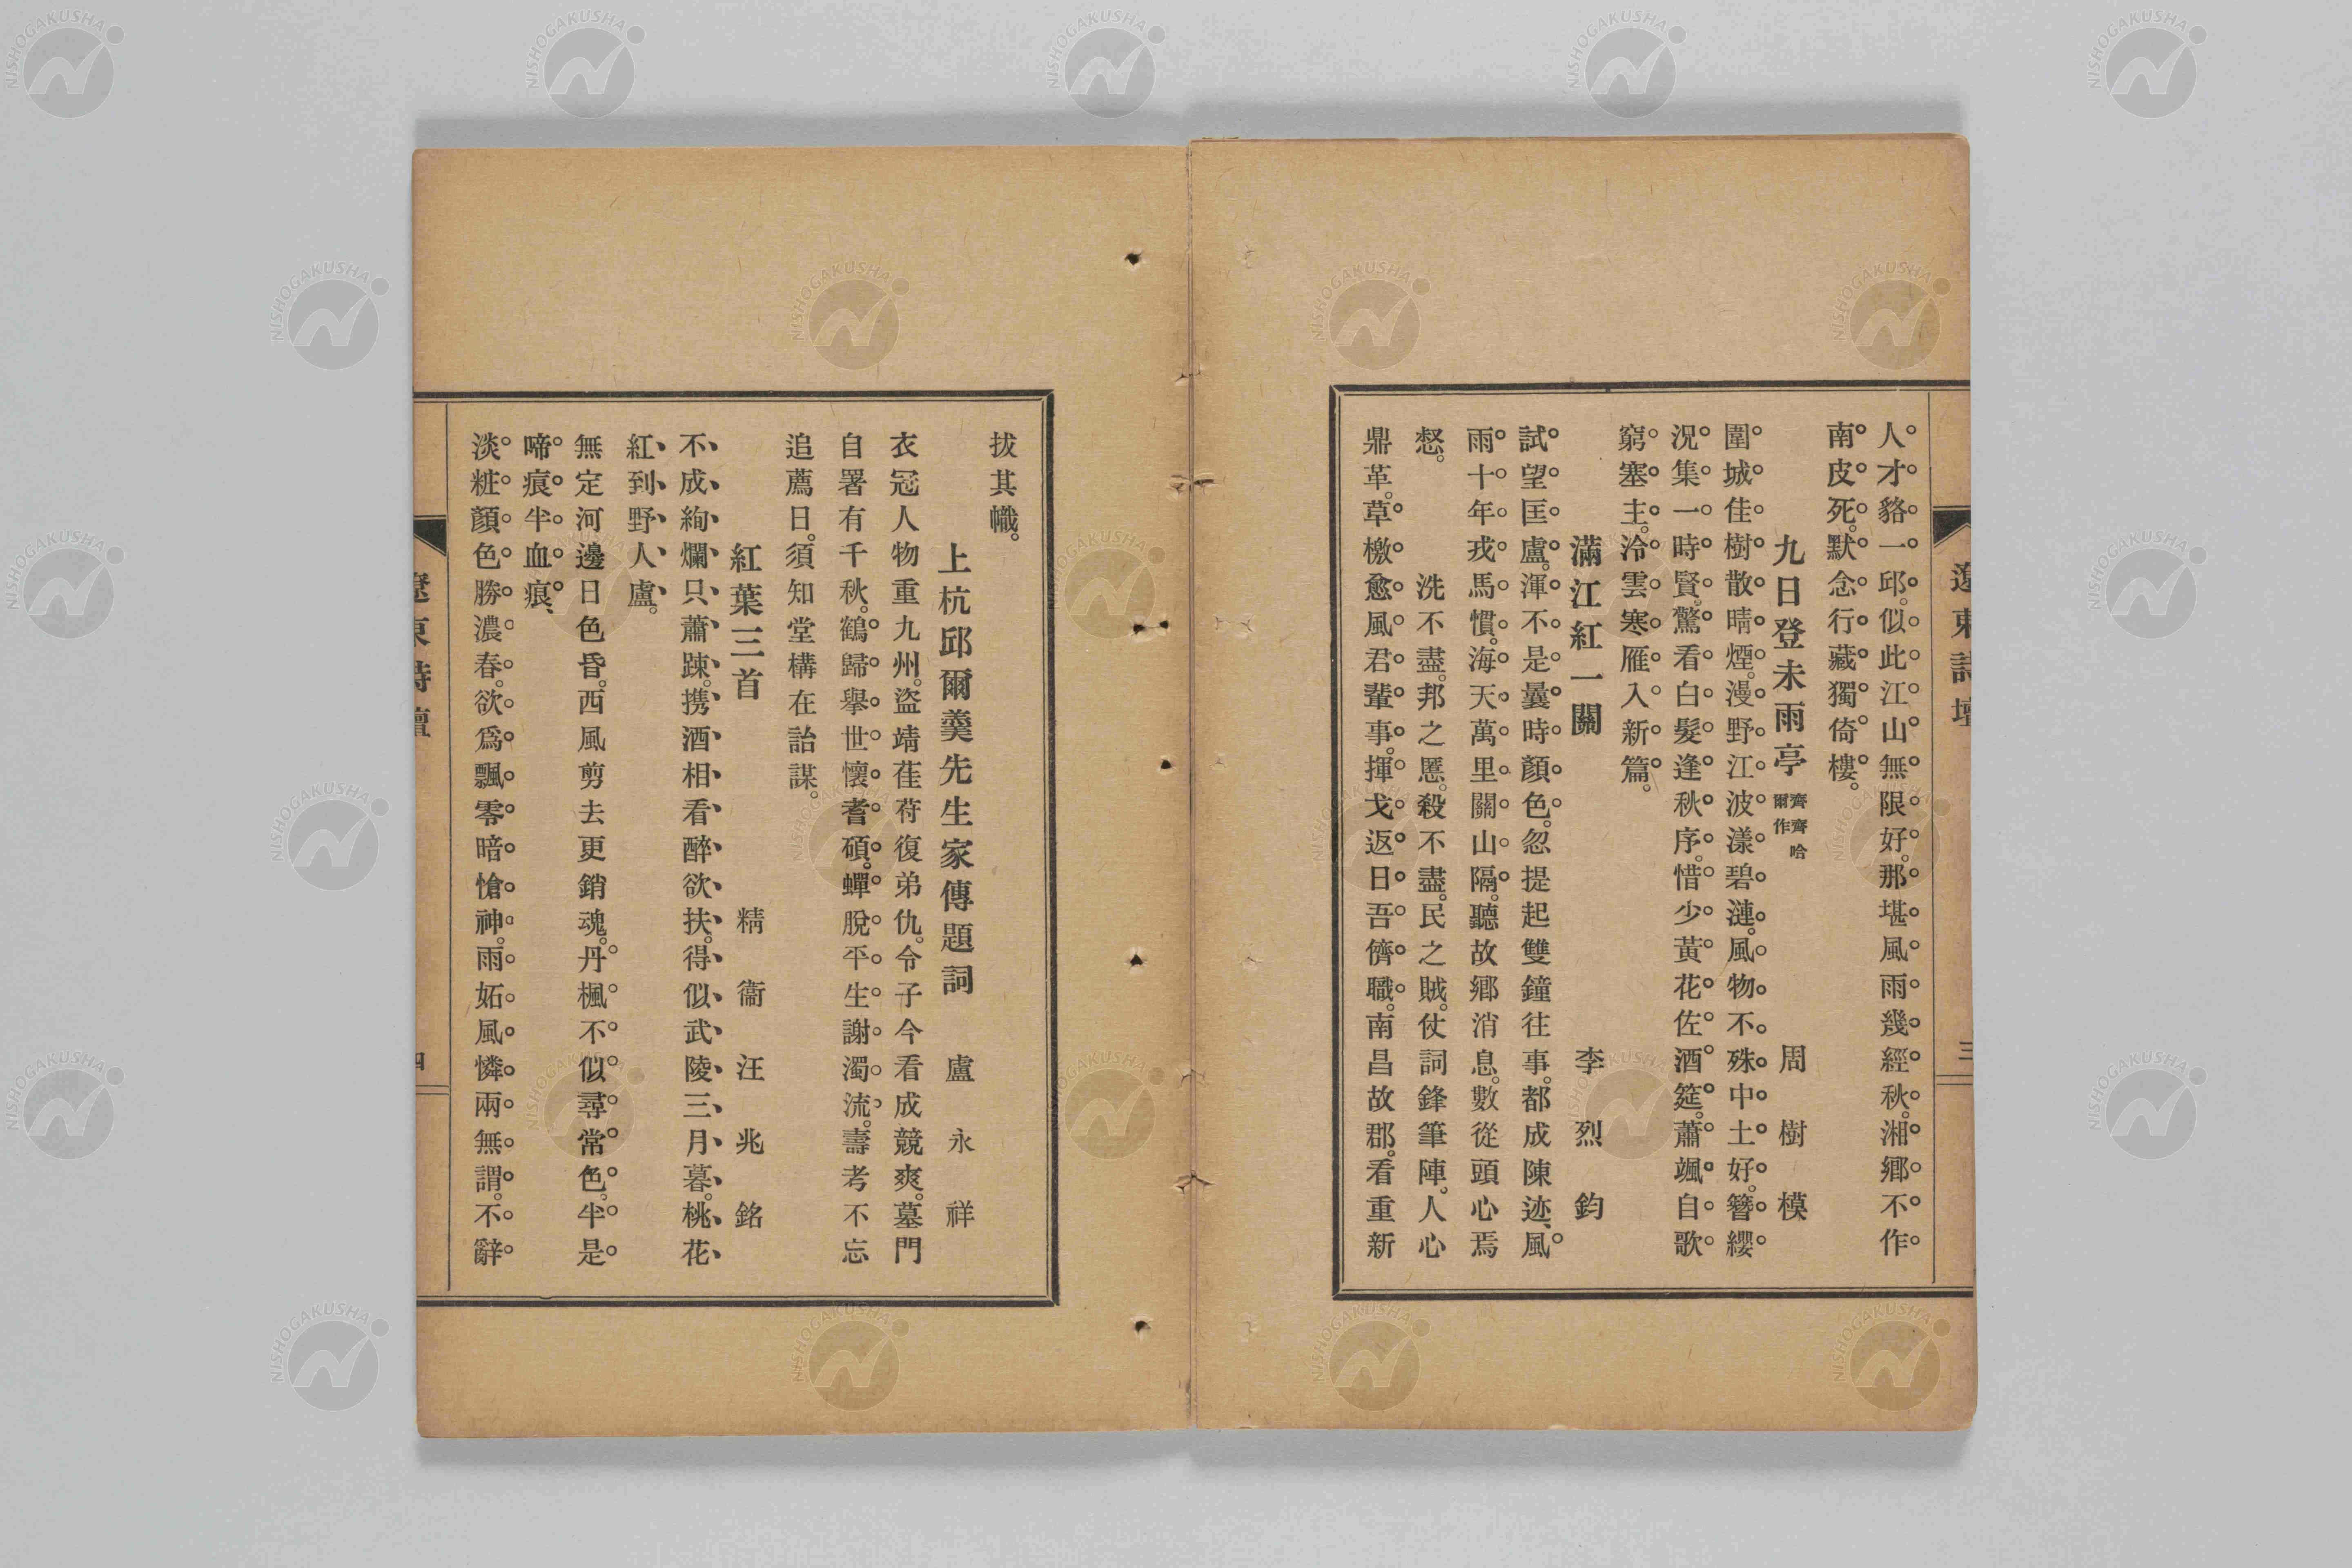 遼東詩壇
三
人才貉一邱。似此江山無限好。那堪風雨幾經秋。湘鄉不作
南皮死。默念行藏獨倚樓。
九日登未雨亭 齊齊哈爾作 周樹模
圍城佳樹散晴煙。漫野江波漾碧漣。風物不殊中土好。簪纓
況集一時賢。驚看白髮逢秋序。惜少黃花佐酒筵。蕭颯自歌
窮塞主。泠雲寒雁入新篇。
滿江紅一闋 李烈鈞
試望匡盧。渾不是曇時顏色。忽提起雙鐘往事。都成陳迹、風
雨十年戎馬慣。海天萬里關山隔。聽故鄉消息。數從頭心焉
惄。 洗不盡。邦之慝。殺不盡。民之賊。仗詞鋒筆陣。人心
鼎革。草檄愈風君輩事。揮戈返日吾儕職。南昌故郡。看重新
拔其幟。
上杭邱爾羹先生家傳題詞 盧永祥
衣冠人物重九州。盜靖萑苻復弟仇。令子今看成競爽。墓門
自署有千秋。鶴歸舉世懷耆碩。蟬脫平生謝濁流。壽考不忘
追薦日。須知堂構在詒謀。
紅葉三首 精衞 汪兆銘
不成絢爛只蕭踈。攜酒相看醉欲扶。得似武陵三月暮。桃花
紅到野人盧。
無定河邊日色昏。西風剪去更銷魂。丹楓不似尋常色。半是
啼痕半血痕、
淡粧顏色勝濃春。欲爲飄零暗愴神。雨妬風憐兩無謂。不辭
遼東詩壇
四
NISHOGAKUSHA